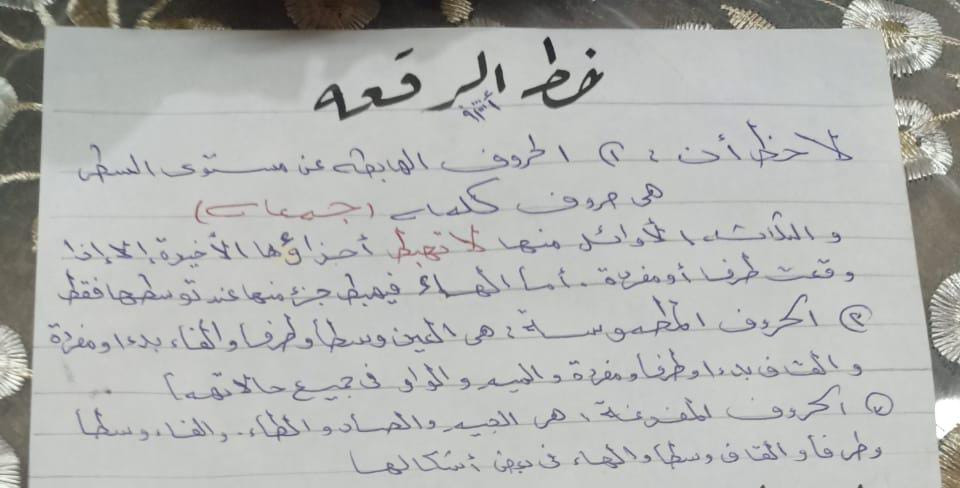 خط الرقعه
لاحظ أن : ① الحروف الهابطه عن مستوى السطر
هى حروف كلمات (جمعات)
و الثلاثه الأوائل منها لا تهبط أجزاؤها الأخيرة إلا إذا
وقعت طرفا أو مفردة . أما الهاء فيهبط جزء منها عند توسطها فقط
② الحروف المطموسة : هى العين وسطا وطرفا والفاء بدءا ومفردة
والقاف بدءا وطرفا ومفردة والميم والواو فى جميع حالاتهما
③ الحروف المفرغة : هى الجيم والصاد والطاء والفاء وسطا
وطرفا والقاف وسطا والهاء فى بعض أشكالها